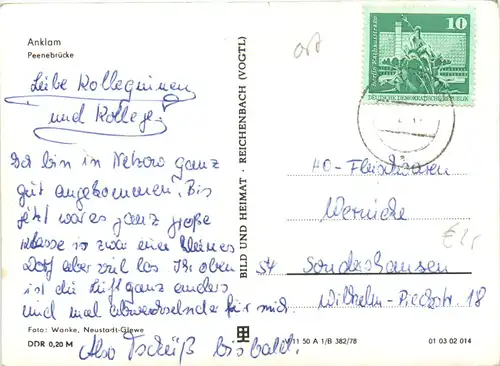 Anklam
Peenebrücke
Liebe Kolleginnen
und Kollege!
Ich bin in Netzow ganz
gut angekommen. Bis
jetzt war es ganz große
Klasse ist zwar ein kleines
Dorf aber viel los. Ihr oben
ist die Luft ganz anders
und mal abwechselnder für mich.
Also Tschüß bis bald.
Foto: Wanke, Neustadt-Glewe
DDR 0,20 M
BILD UND HEIMAT · REICHENBACH (VOGTL)
V 11 50 A 1/B 382/78
01 03 02 014
ort
10
Berlin Rathausstraße
DEUTSCHE DEMOKRATISCHE REPUBLIK
HO-Fleischwaren
Wernicke
Sondershausen
Wilhelm-Pieckstr. 18